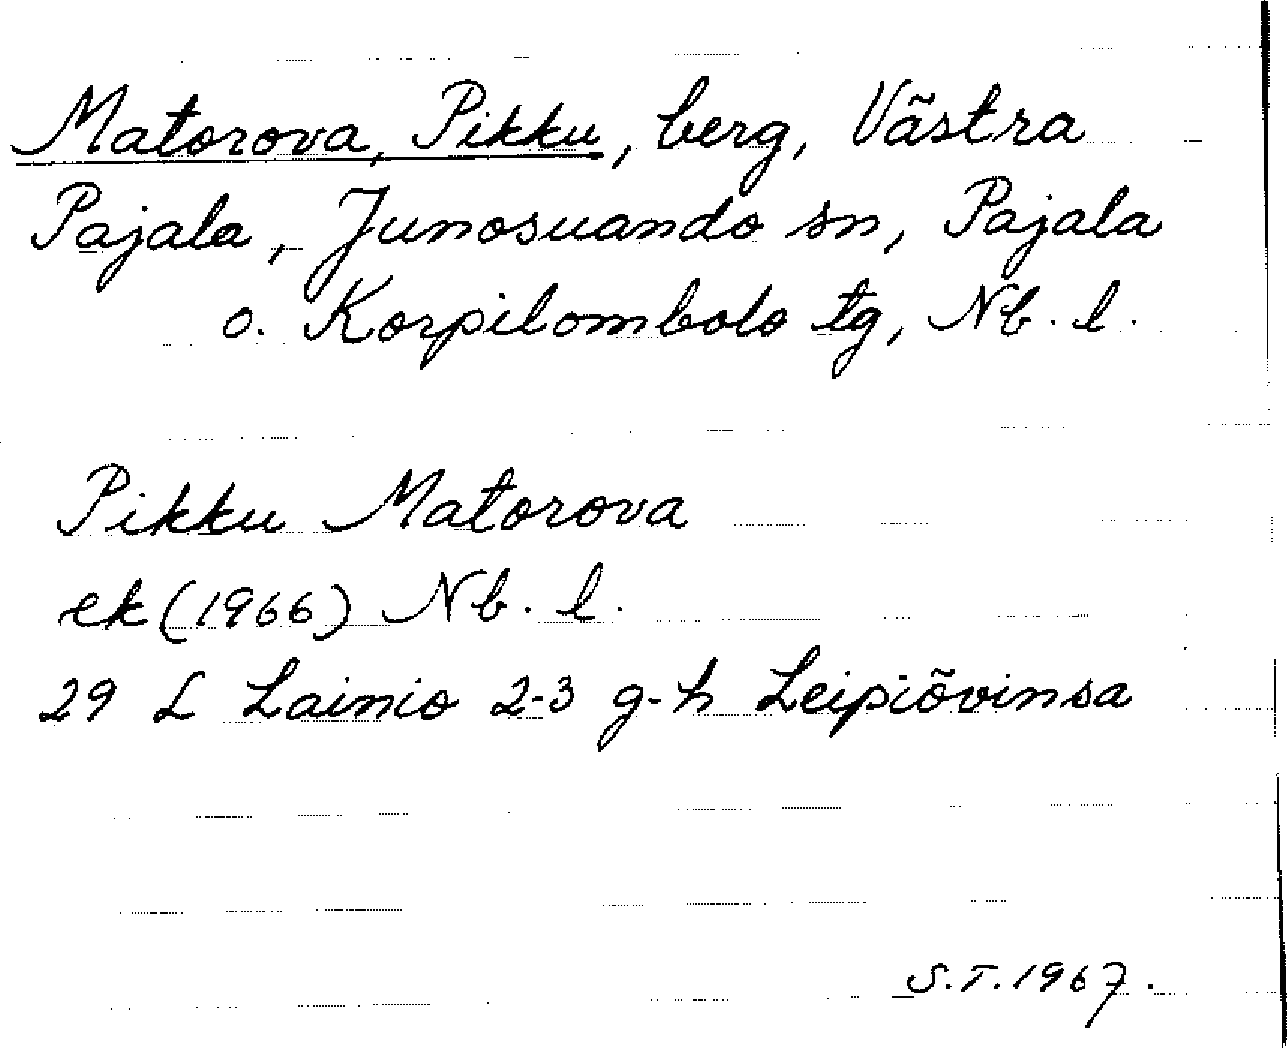 Matorova, Pikku, berg, Västra
Pajala, Junosuando sn, Pajala
o. Korpilombolo tg, Nb. l.
Pikku Matorova
ek (1966) Nb. l.
29 L Lainio 2-3 g-h Leipiövinsa
S.T. 1967.